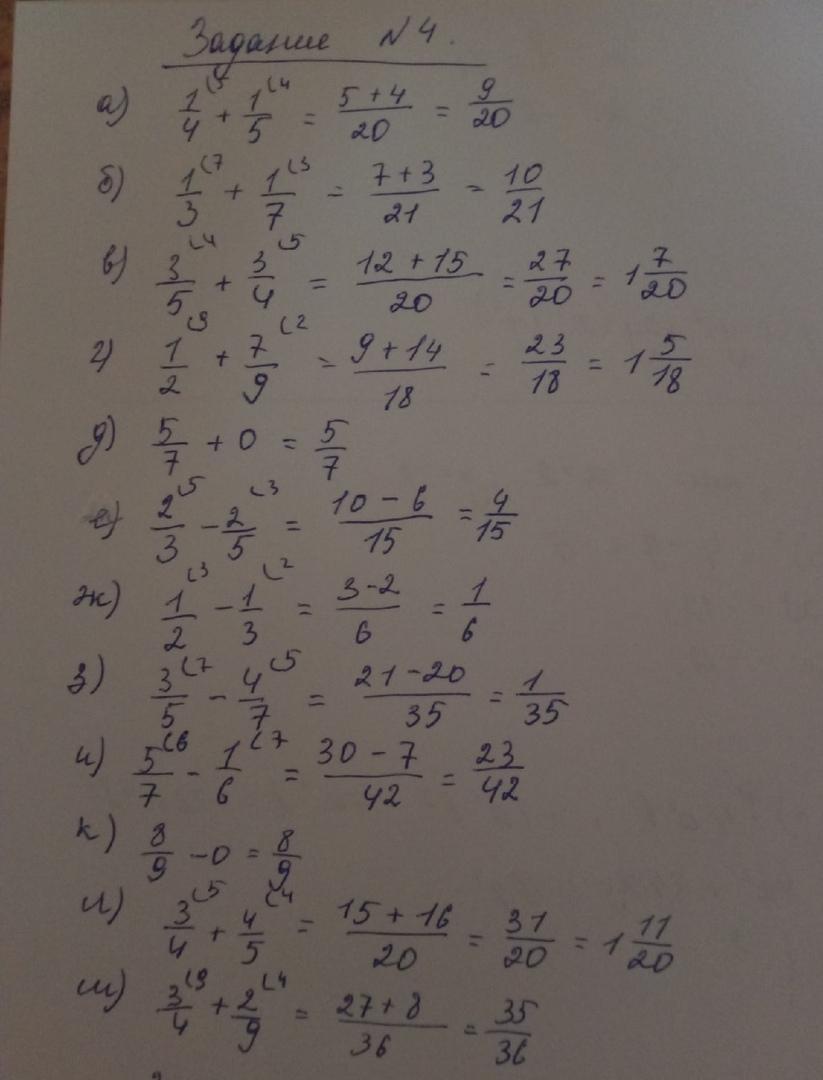 Задание N 4.
а) 1/4 (5 + 1/5 (4 = 5 + 4/20 = 9/20
б) 1/3 (7 + 1/7 (3 = 7 + 3/21 = 10/21
в) 3/5 (4 + 3/4 (5 = 12 + 15/20 = 27/20 = 1 7/20
г) 1/2 (9 + 7/9 (2 = 9 + 14/18 = 23/18 = 1 5/18
д) 5/7 + 0 = 5/7
е) 2/3 (5 - 2/5 (3 = 10 - 6/15 = 4/15
ж) 1/2 (3 - 1/3 (2 = 3 - 2/6 = 1/6
з) 3/5 (7 - 4/7 (5 = 21 - 20/35 = 1/35
и) 5/7 (6 - 1/6 (7 = 30 - 7/42 = 23/42
к) 8/9 - 0 = 8/9
л) 3/4 (5 + 4/5 (4 = 15 + 16/20 = 31/20 = 1 11/20
м) 3/4 (9 + 2/9 (4 = 27 + 8/36 = 35/36